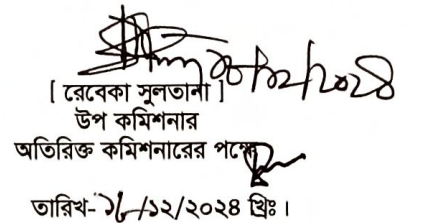 [ রেবেকা সুলতানা ]
উপ কমিশনার
অতিরিক্ত কমিশনারের পক্ষে
তারিখ- /১২/২০২৪ খ্রিঃ।